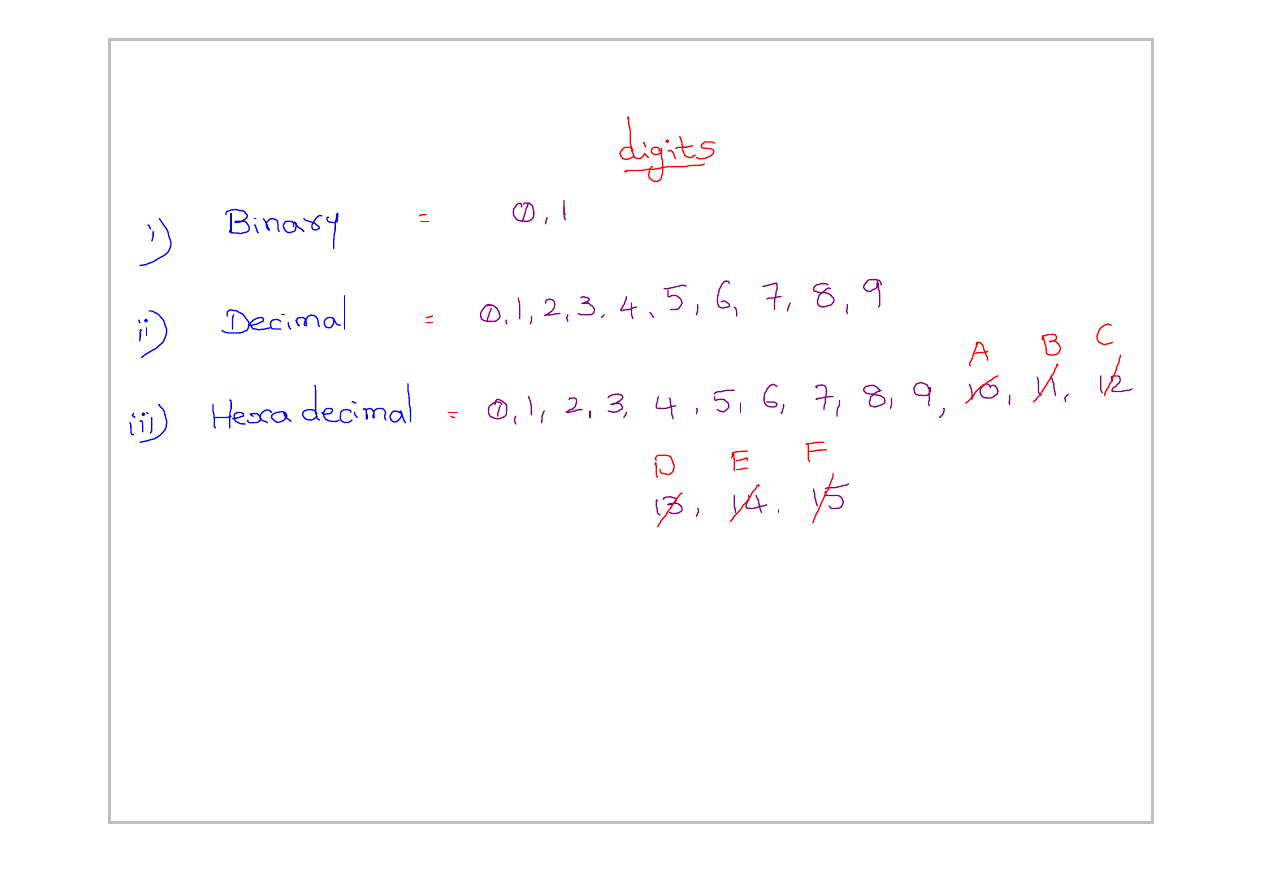 digits
i) Binary = 0, 1
ii) Decimal = 0, 1, 2, 3, 4, 5, 6, 7, 8, 9
A B C
iii) Hexa decimal = 0, 1, 2, 3, 4, 5, 6, 7, 8, 9, 10, 11, 12
D E F
13, 14, 15